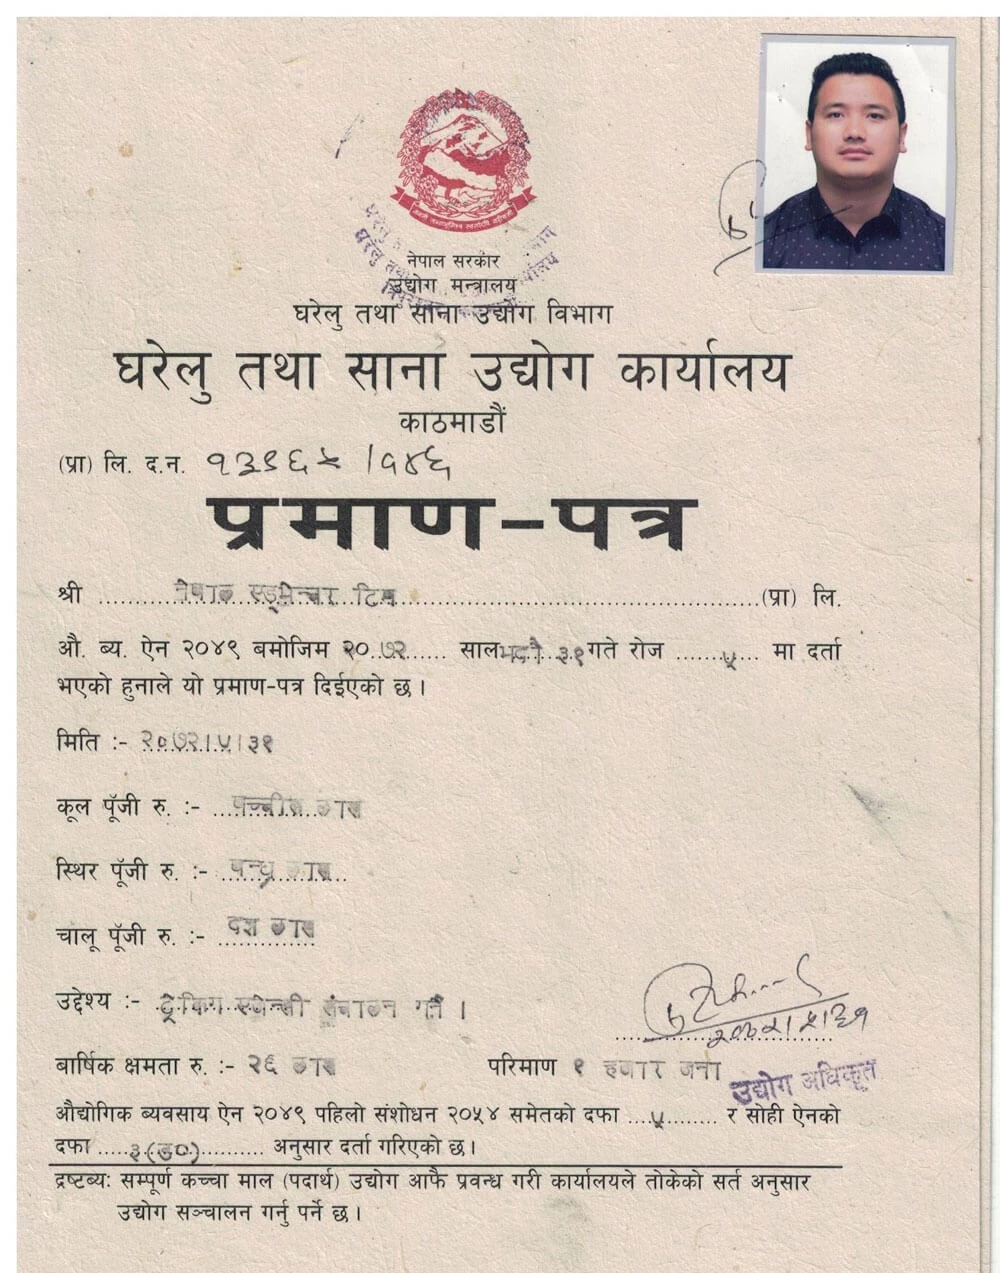 नेपाल सरकार
उद्योग मन्त्रालय
घरेलु तथा साना उद्योग विभाग
घरेलु तथा साना उद्योग कार्यालय
काठमाडौं
(प्रा) लि. द.न. १३९६५ /१४६
प्रमाण-पत्र
श्री नेपाल एड्भेन्चर टिम (प्रा) लि.
औ. ब्य. ऐन २०४९ बमोजिम २०७२ साल भदौ ३१ गते रोज ५ मा दर्ता
भएको हुनाले यो प्रमाण-पत्र दिईएको छ ।
मिति :- २०७२।५।३१
कूल पूँजी रु. :- पच्चीस लाख
स्थिर पूँजी रु. :- पन्ध्र लाख
चालू पूँजी रु. :- दश लाख
उद्देश्य :- ट्रेकिंग एजेन्सी संचालन गर्ने ।
२०७२/५/३१
बार्षिक क्षमता रु. :- २६ लाख परिमाण १ हजार जना
उद्योग अधिकृत
औद्योगिक ब्यवसाय ऐन २०४९ पहिलो संशोधन २०५४ समेतको दफा ५ र सोही ऐनको
दफा ३(ड०) अनुसार दर्ता गरिएको छ ।
द्रष्टब्यः सम्पूर्ण कच्चा माल (पदार्थ) उद्योग आफै प्रवन्ध गरी कार्यालयले तोकेको सर्त अनुसार
उद्योग सञ्चालन गर्नु पर्ने छ ।